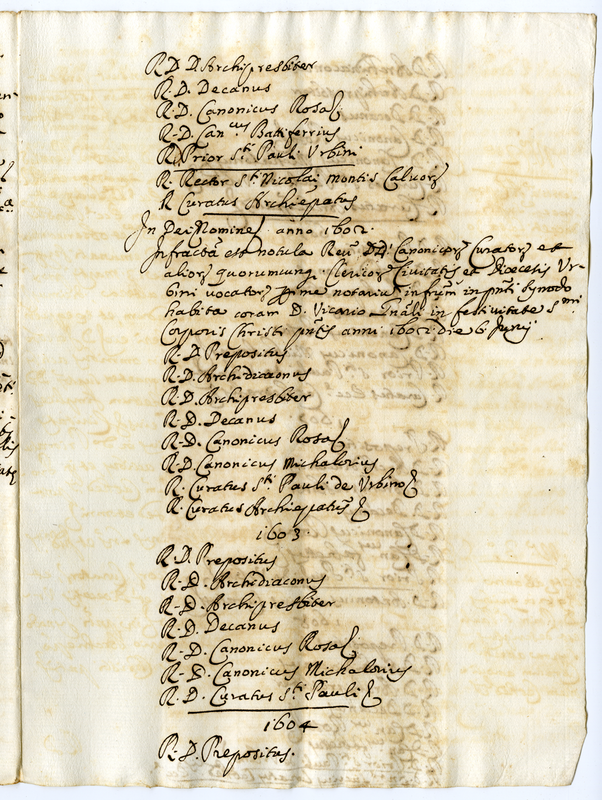 R D D. Archipresbiter
R. D. Decanus
R. D. Canonicus Rosa
R. D. Can.cus Battiferrius
R. Prior S.ti Pauli Urbini
R. Rector S.ti Nicolai montis Calvor
R Curatus Archiepatus
In Dei Nomine anno 1602.
Infracta est notula Reu DD. Canonicor Curator et
alior quorumcunq. Clericor Civitatis et Diocesis Ur-
bini vocator per me notariu infrum in pnti synodo
habita coram D. Vicario Gnali in festivitate S.mi
Corporis Christi pntis anni 1602 die 6 Junij
R. D. Prepositus
R. D. Archidiaconus
R. D. Archipresbiter
R. D. Decanus
R. D. Canonicus Rosa
R. D. Canonicus Michalorius
R. Curatus S.ti Pauli de Urbino
R. Curatus Archiepatus
1603.
R. D. Prepositus
R. D. Archidiaconus
R. D. Archipresbiter
R. D. Decanus
R. D. Canonicus Rosa
R. D. Canonicus Michalorius
R. D. Curatus S.ti Pauli
1604
R. D. Prepositus.